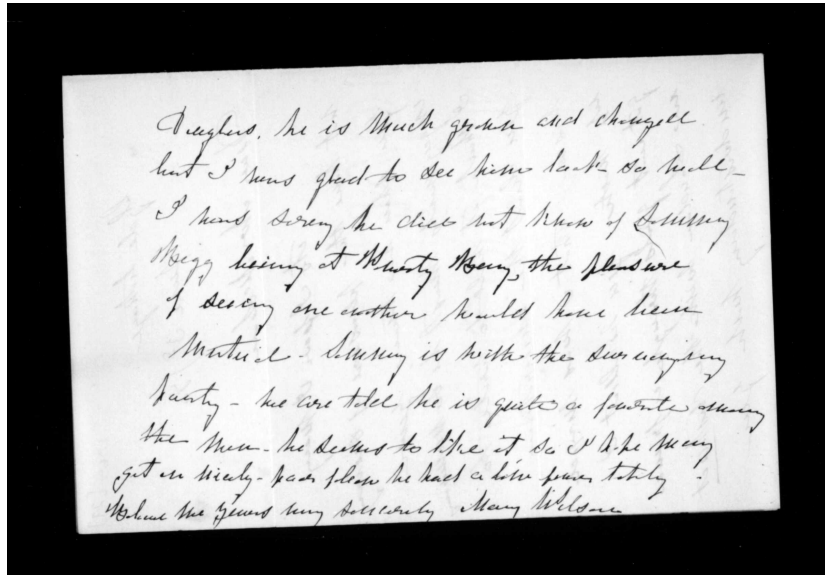 Douglas. he is much grown and changed
but I was glad to see him look so well -
I was sorry he did not know of Jimmy
being at the pleasure
of seeing one another would have been
mutual - Jimmy is with the surveying
party - we are told he is quite a favorite among
the men - he seems to like it so I hope may
get on nicely - poor he had a low fever lately -
Believe me yours very sincerely Mary Wilson